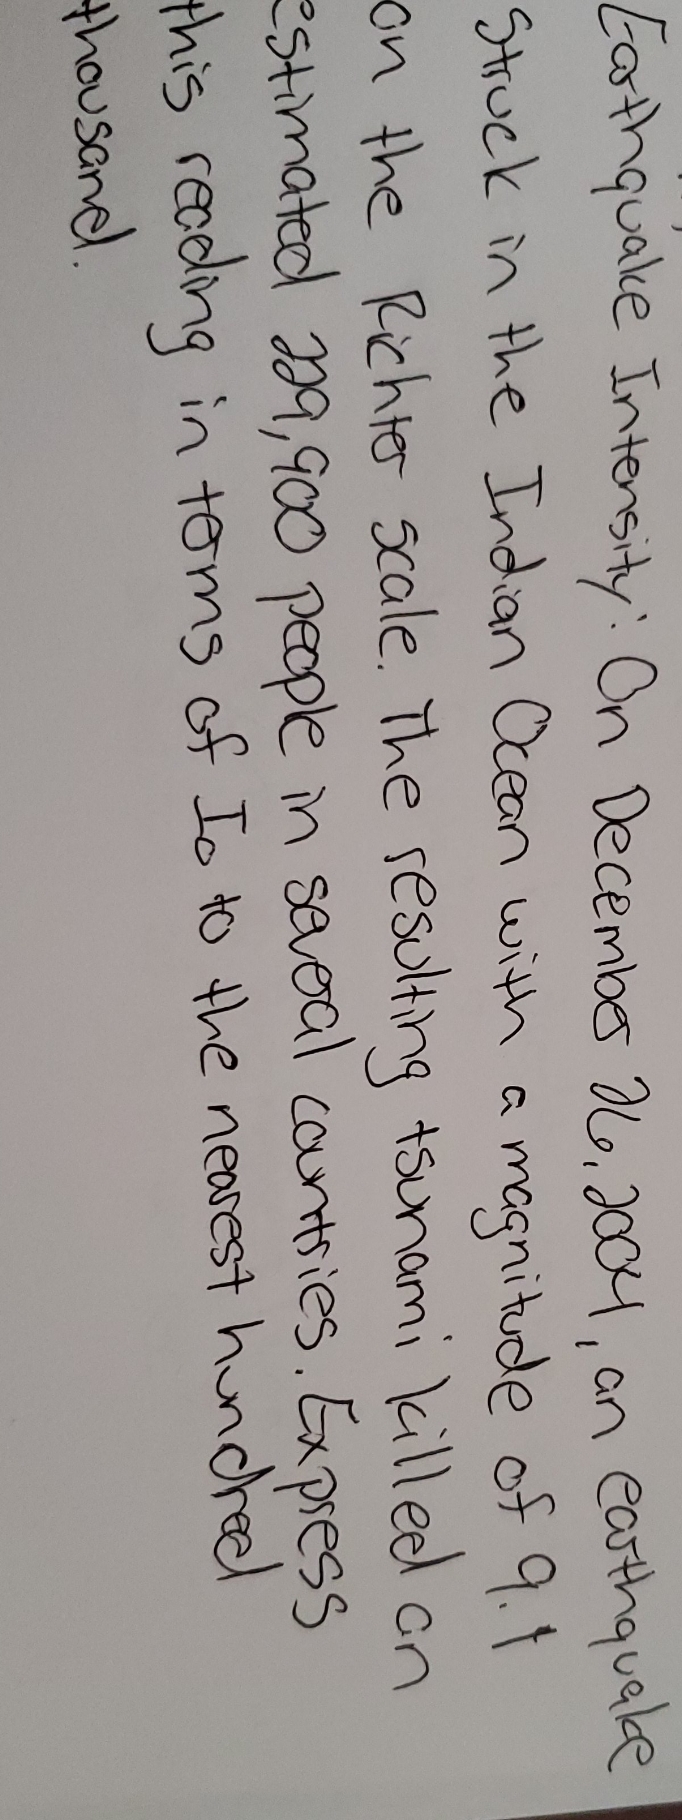 Earthquake Intensity: On December 26, 2004, an earthquake
struck in the Indian Ocean with a magnitude of 9.1
on the Richter scale. The resulting tsunami killed an
estimated 229,900 people in several countries. Express
this reading in terms of Io to the nearest hundred
thousand.